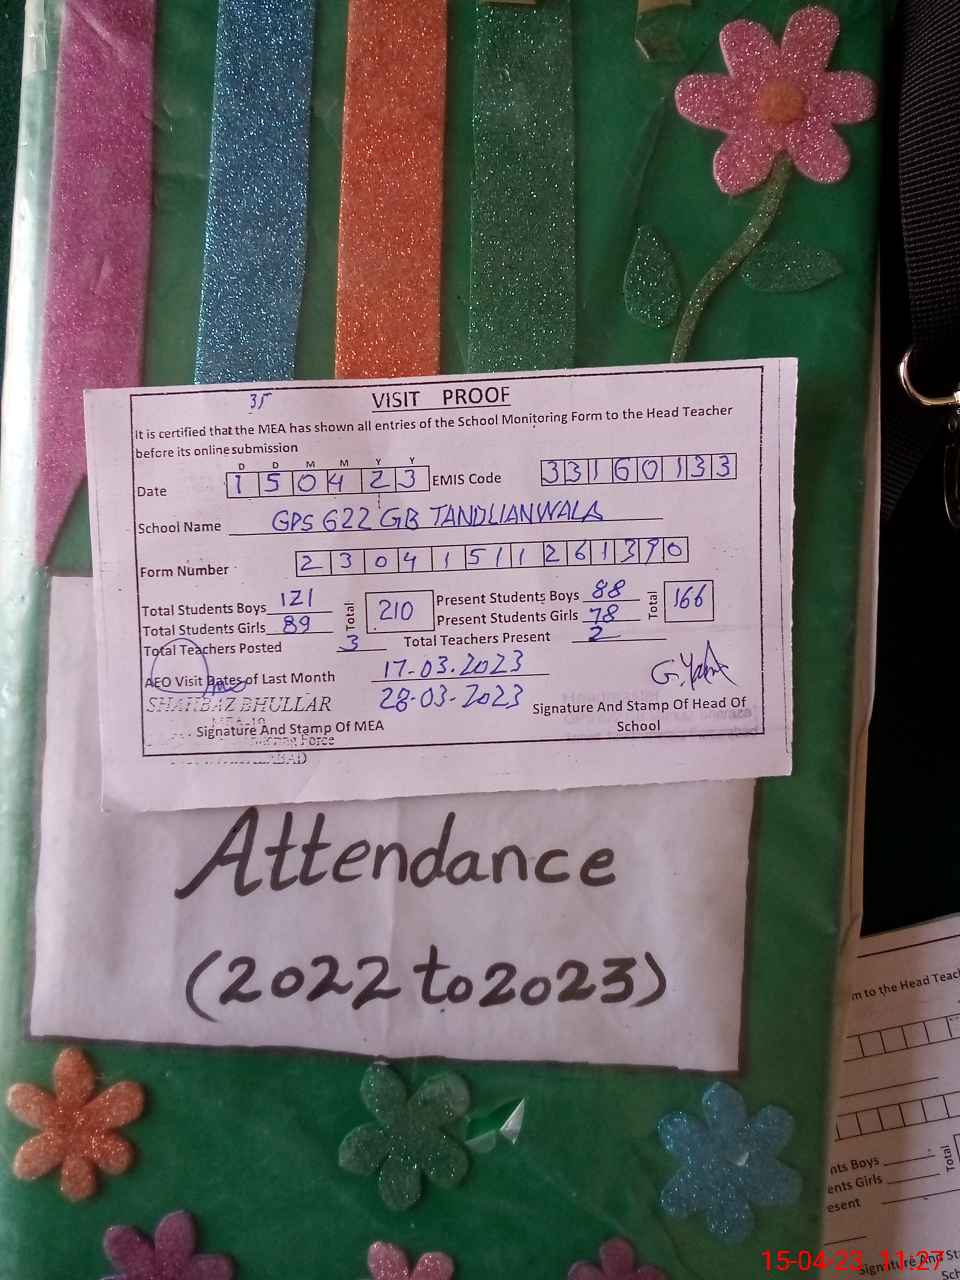 35
VISIT PROOF
It is certified that the MEA has shown all entries of the School Monitoring Form to the Head Teacher
before its online submission
D D M M Y Y
Date 1 5 0 4 2 3 EMIS Code 3 3 1 6 0 1 3 3
School Name GPS 622 GB TANDLIANWALA
Form Number 2 3 0 4 1 5 1 1 2 6 1 3 9 0
Total Students Boys 121 Total 210 Present Students Boys 88 Total 166
Total Students Girls 89 Present Students Girls 78
Total Teachers Posted 3 Total Teachers Present 2
AEO Visit Dates of Last Month 17-03-2023
28-03-2023
SHAHBAZ BHULLAR
Signature And Stamp Of MEA
Signature And Stamp Of Head Of
School
Attendance
(2022 to 2023)
m to the Head Teac
nts Boys
ents Girls
Total
esent
Signature And St
Sch
15-04-23 11:27